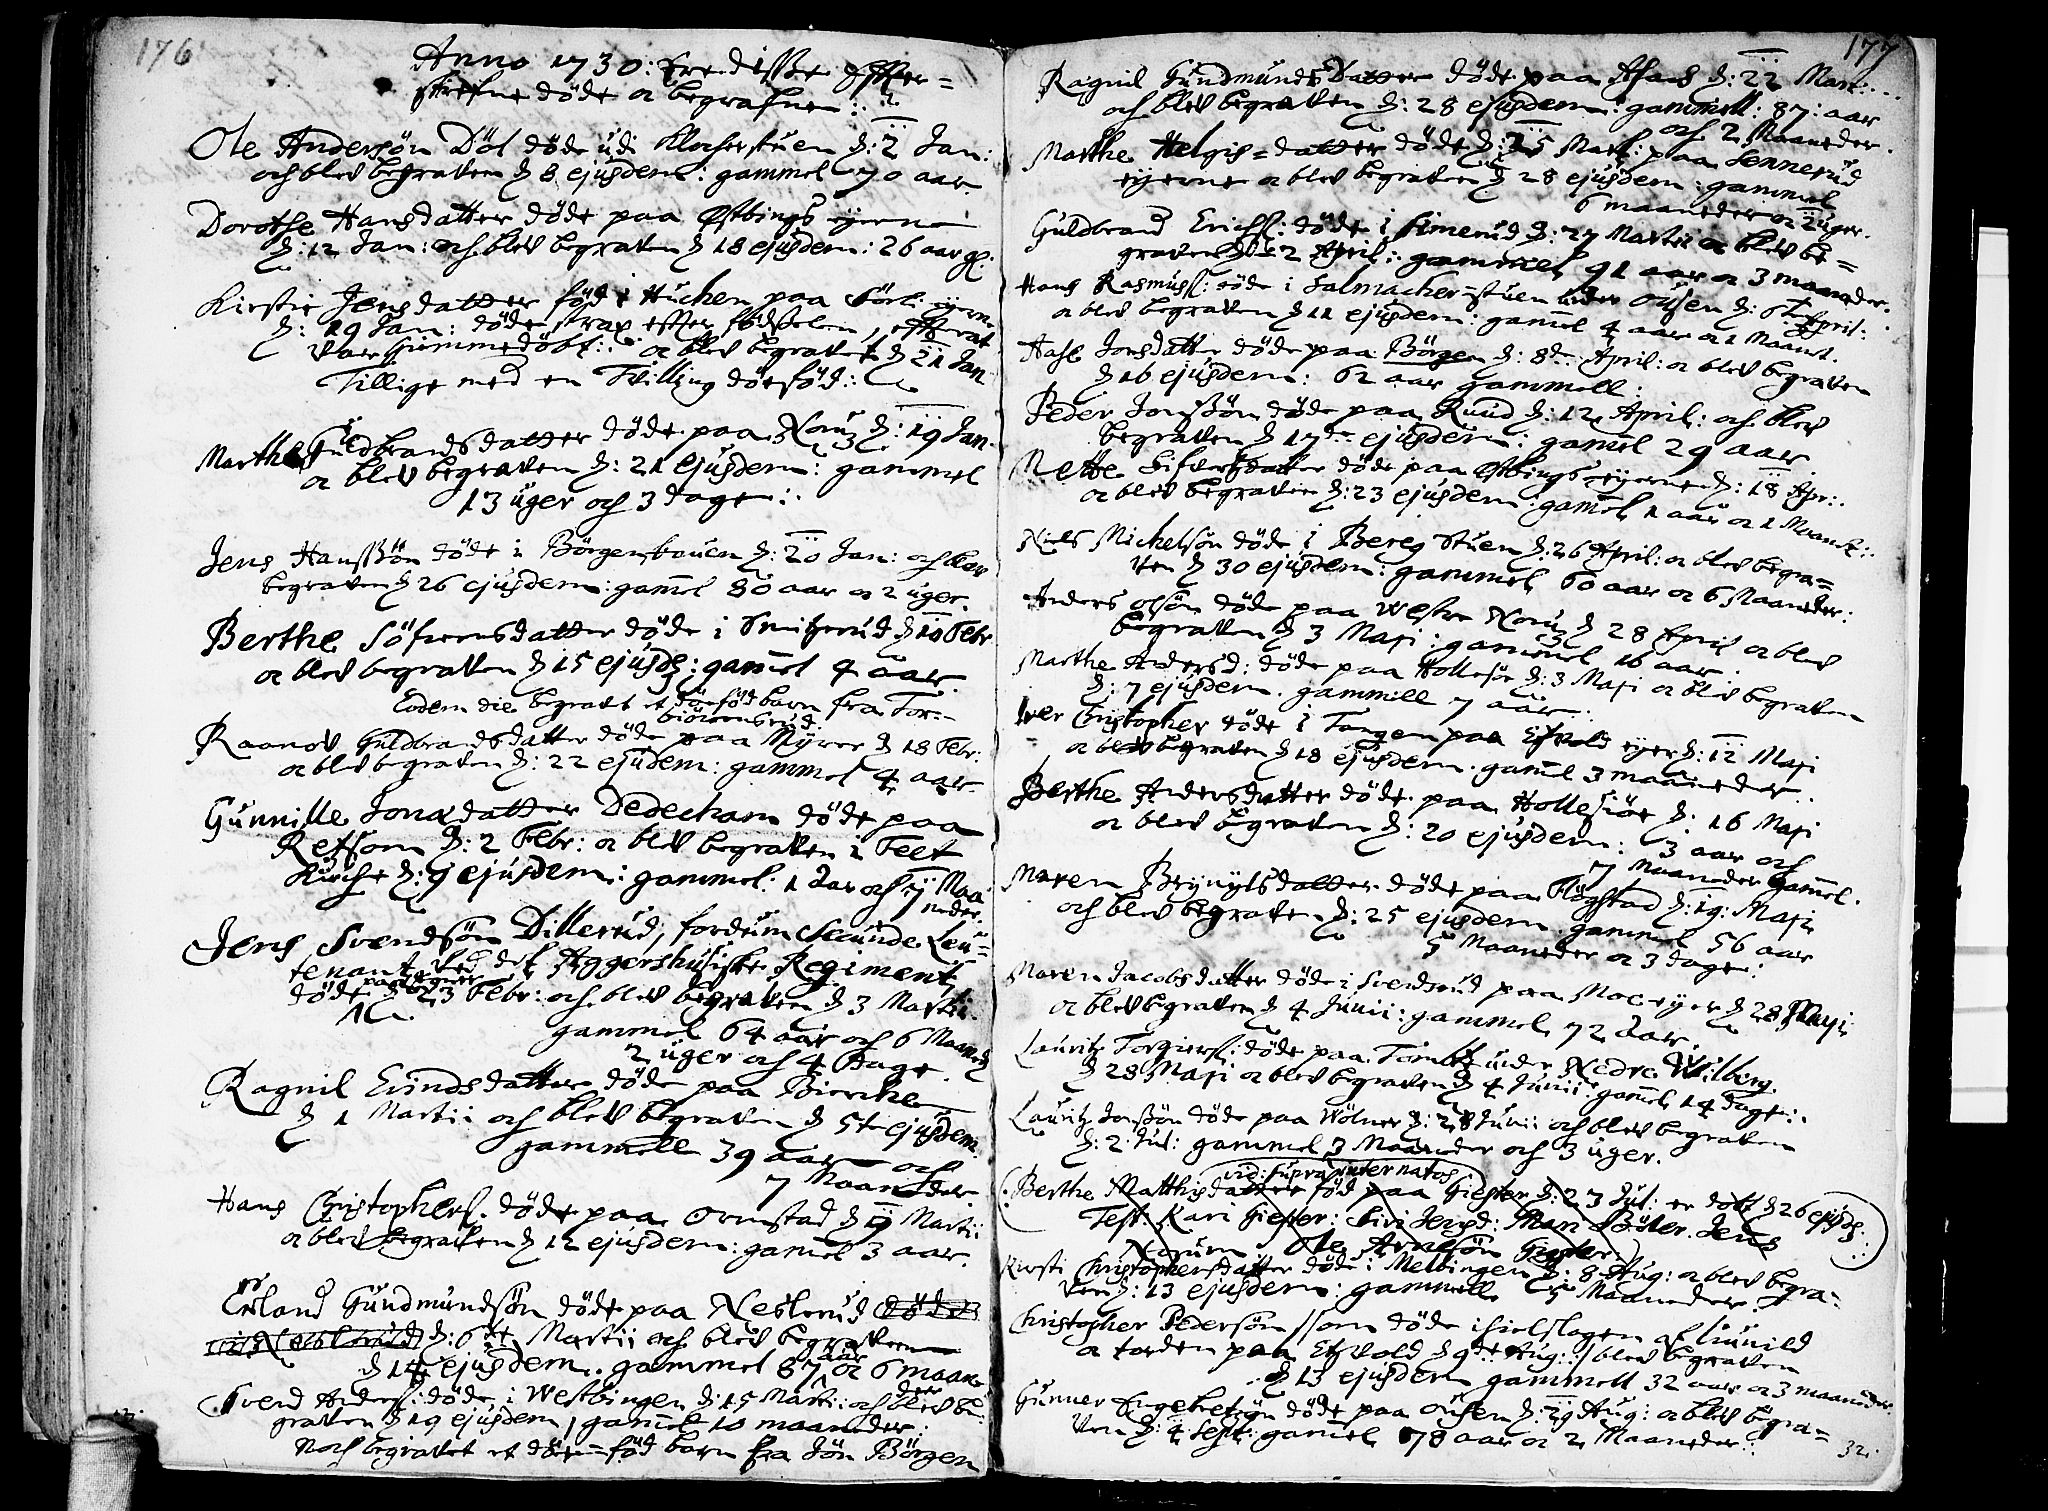 176
Anno 1730: Ere disse Effter=
skrefne døde oc begrafne:
Ole Andersøn Döl døde udi Klocherstuen d: 2 Jan:
och blev begraven d 8 ejusdem: gammel 70 aar
Dorothe Hansdatter døde paa Østbings eyerne
d: 12 Jan: och blev begraven d 18 ejusdem: 26 aar gl:
Kirstie Jensdatter fød i Kuchen paa eyerne
d: 19 Jan: døde strax effter fødselen, effterat
vaar hiemmedøbt: oc blev begravet d 21 Jan
Tillige med en Tvilling døefød:
Marthe Guldbrandsdatter døde paa Noru d: 19 Jan.
oc blev begraven d: 21 ejusdem: gammel
13 uger och 3 dage:
Jens Hanssøn døde i Börgenstauen d: 20 Jan: och blev
begraven d 26 ejusdem: gamel 80 aar oc 2 uger.
Berthe Söfrensdatter døde i Smitzerud d 10 Febr
oc blev begraven d 15 ejusd: gamel 4 aar.
Eodem die begravt et døefød barn fra Tor=
biörensrud
Raanov Guldbrandsdatter døde paa Myrer d 18 Febr:
oc blev begraven d: 22 ejudem: gammel 4 aar
Gunnille Jonædatter Dedecham døde paa
Refsom d: 2 Febr: oc blev begraven i Feet
Kirche d: 9 ejusdem: gammel: 1 Aar och 7 Maa
neder.
Jens Svendsön Dillerud, fordum Secunde Leu=
tenant ved det Aggershusiske Regiment,
døde paa d: 23 Febr: och blev begraven d 3 Martii.
gammel 64 aar och 6 Maaned
2 uger och 4 Dage.
Ragnil Evindsdatter døde paa Bierche
d 1 Martii och blev begraven d 5te ejusdem
gammell 39 aar och
7 Maaneder
Hans Christophers. døde paa Ormstad d 9 Martii
oc blev begraven d 12 ejusdem: gamel 3 aar.
Erland Gundmundsön døde paa Neslerud
d: 6te Martii och blev begraven
d 14 ejusdem. gammel 87 aar oc 6 maane
der
Svend Anders: døde i Westbingen d: 15 Marti: och blev be
graven d 19 ejusdem, gamel 10 maaneder:
Noch begravet et døe=fød barn fra Jön Börgen
177
Ragnil Gundmundsdatter døde paa Aßad d: 22 Mart:
och blev begraven d: 28 ejusdem: gammell: 87: aar
och 2 Maaneder.
Marthe Helgis=datter døde d: 25 Mart: paa Sennerud
eyerne oc blev begraven d 28 ejusdem: gammel
6 maaneder oc 2 uger.
Guldbrand Erichs: døde i Simerud d: 27 Martii oc blev be=
graven d: 2 April: gammel 91 aar oc 3 maaneder.
Hans Rasmuss: døde i Salmacher=stuen under Ousen d: 6te April:
oc blev begraven d 11 ejusdem: gamel 4 aar oc 1 Maanet.
Aase Jonsdatter døde paa Börgen d: 8de April: oc blev begraven
d 16 ejusdem: 62 aar gammell:
Peder Jonssøn døde paa Ruud d: 12 April: och blev
begraven d 17de ejusdem: gamel 29 aar
Mette Sifversdatter døde paa Østbings eyerne d: 18 Apr:
oc blev begraven d: 23 ejusdem: gamel 1 aar oc 1 Maanet:
Niels Michelsön døde i Bereg Stuen d: 26 April: oc blev begra=
ven d 30 ejusdem: gammel 60 aar oc 6 Maaneder.
Anders olsön døde paa Westre Noru d 28 April oc blev
begraven d 3 Maji: gammel 16 aar
Marthe Andersd: døde paa Hollesiøe d: 3 Maji oc blev begraven
d: 7 ejusdem. gammell 7 aar:
Iver Christopher døde i Tangen paa Eswold eyer d: 12 Maji
oc blev begraven d 18 ejusdem. gamel 3 maaneder:
Berthe Andersdatter døde paa Hollesiøe d: 16 Maji
oc blev begraven d: 20 ejusdem: 3 aar och
7 Maaneder gamel.
Maren Brynylsdatter døde paa Högstad d: 19: Maji
och blev begraven d: 25 ejusdem. gammel 56 aar
5 Maaneder oc 3 dage:
Maren Jacobsdatter døde i Svendsrud paa Moe eyer d 28 Maji
oc blev begraven d 4 Junii: gammel 72 Aar.
Lauritz Torgiers: døde paa Tomt under Nedre Wilberg
d 28 Maji oc blev begraven d 4 Junii: gamel 14 dage:
Lauritz Jonssøn døde paa Wölner d: 28 Junii och blev begraven
d: 2 Jul: gammel 3 Maaneder och 3 uger.
vid: supra inter natos
Berthe Matthisdatter fød paa Giester d: 23 Jul: er døbt d 26 ejusd:
Test: Kari Giester: Siri Jensd: Mari Böler. Jens
Norum. Ole Arnesøn Giester:
Kirsti Christophersdatter døde i Melbingen d: 8 Aug: oc blev begra=
ven d: 13 ejusdem: gammell 5 Maaneder.
Christopher Pedersön, som døde ihielslagen af Liunild
oc torden paa Etzvold d 9de Aug: blev begraven
d 13 ejusdem gammell 32 aar oc 3 maaneder.
Gunner Engebretzøn døde paa Ousen d: 29 Aug: oc blev begra=
ven d: 4 Sept: gamel 78 aar oc 2 Maaneder:
32.